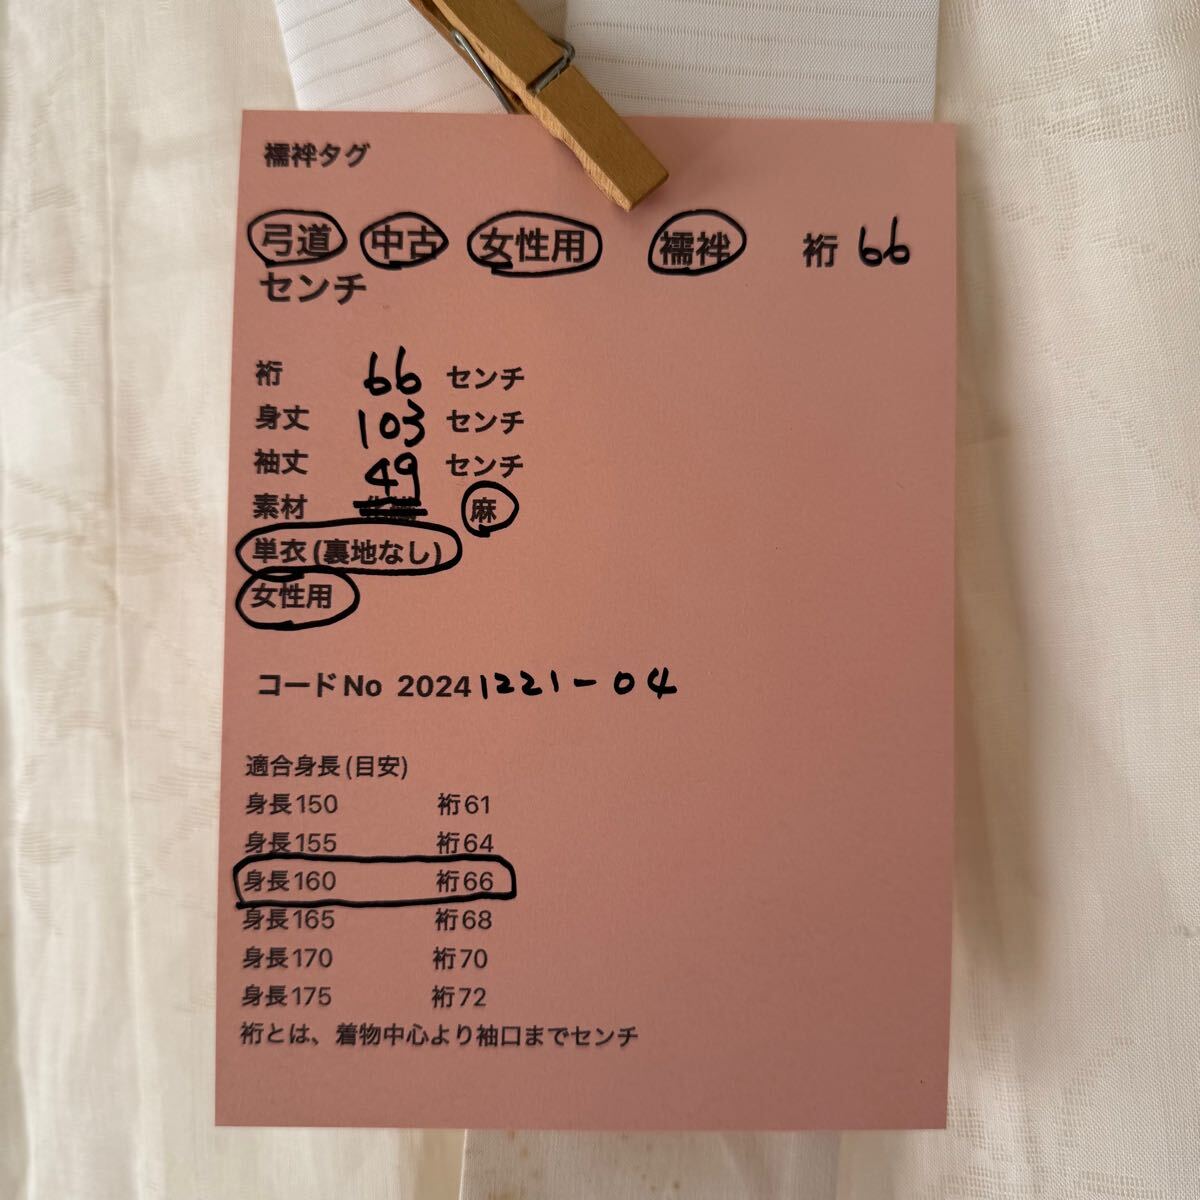 襦袢タグ
弓道 中古 女性用 襦袢 裄 66
センチ
裄 66 センチ
身丈 103 センチ
袖丈 49 センチ
素材 麻
単衣(裏地なし)
女性用
コードNo 20241221-04
適合身長(目安)
身長150 裄61
身長155 裄64
身長160 裄66
身長165 裄68
身長170 裄70
身長175 裄72
裄とは、着物中心より袖口までセンチ